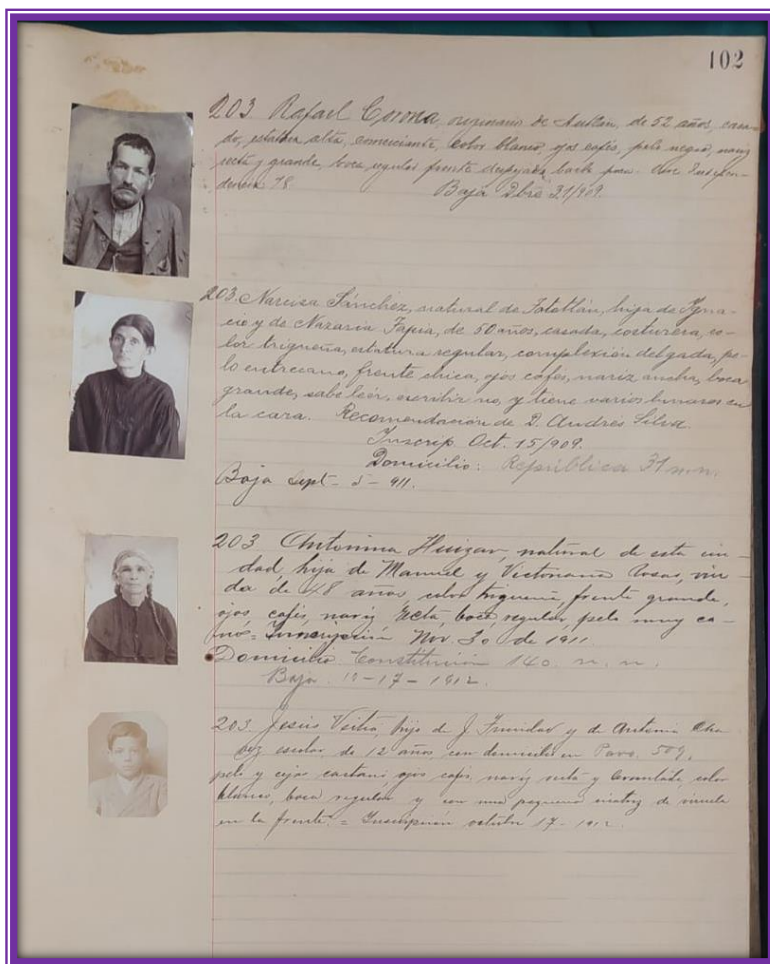 102
203. Rafael Corona, originario de Autlán, de 52 años, casa-
do, estatura alta, comerciante, color blanco, ojos cafés, pelo negro, nariz
recta y grande, boca regular frente despejada barba poca. Indepen-
dencia 78. Baja Dbre 31/909.
203. Narcisa Sánchez, natural de Tototlán, hija de Igna-
cio y de Nazaria Tapia, de 50 años, casada, costurera, co-
lor trigueña, estatura regular, complexión delgada, pe-
lo entrecano, frente chica, ojos cafés, nariz ancha, boca
grande, sabe leer, escribir no, y tiene varios lunares en
la cara. Recomendación de D. Andrés Silva.
Inscrip. Oct. 15/909.
Domicilio: República 31 n.n.
Baja Sept - 5 - 911.
203 Antonina Huizar, natural de esta ciu-
dad, hija de Manuel y Victoriana Rosas, viu-
da de 48 años, color trigueña, frente grande,
ojos cafés, nariz recta, boca regular, pelo muy ca-
no = Inscripción Nov. 30 de 1911
Domicilio Constitución 140. n. n.
Baja. 10-17-1912.
203. Jesús Veitia, hijo de J. Trinidad y de Antonia Cha-
vez escolar, de 12 años con domicilio en Pavo. 509,
pelo y cejas castaño ojos cafés, nariz recta y levantada, color
blanco, boca regular y con una pequeña cicatriz de viruela
en la frente. = Inscripción octubre 17 - 1912.